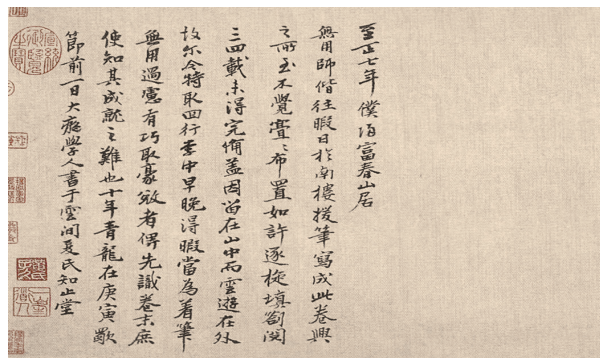 至正七年僕歸富春山居
無用師偕往暇日於南樓援筆寫成此卷興
之所至不覺亹〻布置如許逐旋填劄閱
三四載未得完備盖因留在山中而雲遊在外
故爾今特取回行李中早晚得暇當為着筆
無用過慮有巧取豪敚者俾先識卷末庶
使知其成就之難也十年青龍在庚寅歜
節前一日大癡學人書于雲間夏氏知止堂